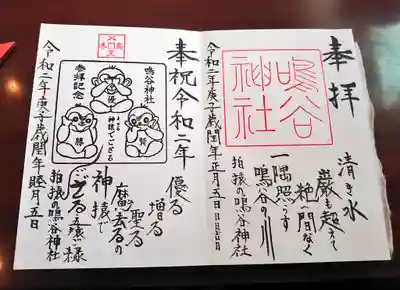 奉拝
清き水
巌も超えて
絶間なく
一隅照らす
鳴谷の川
鳴谷
神社
拍猿の鳴谷神社
令和二年庚子歳閏年正月五日
奉祝令和二年
鳴谷神社
優
神猿でござる
賢
勝
参拝記念
優る
増る
聖る
魔去るの
神猿で
ござる
拍猿の鳴谷神社
令和二年庚子歳閏年睦月五日